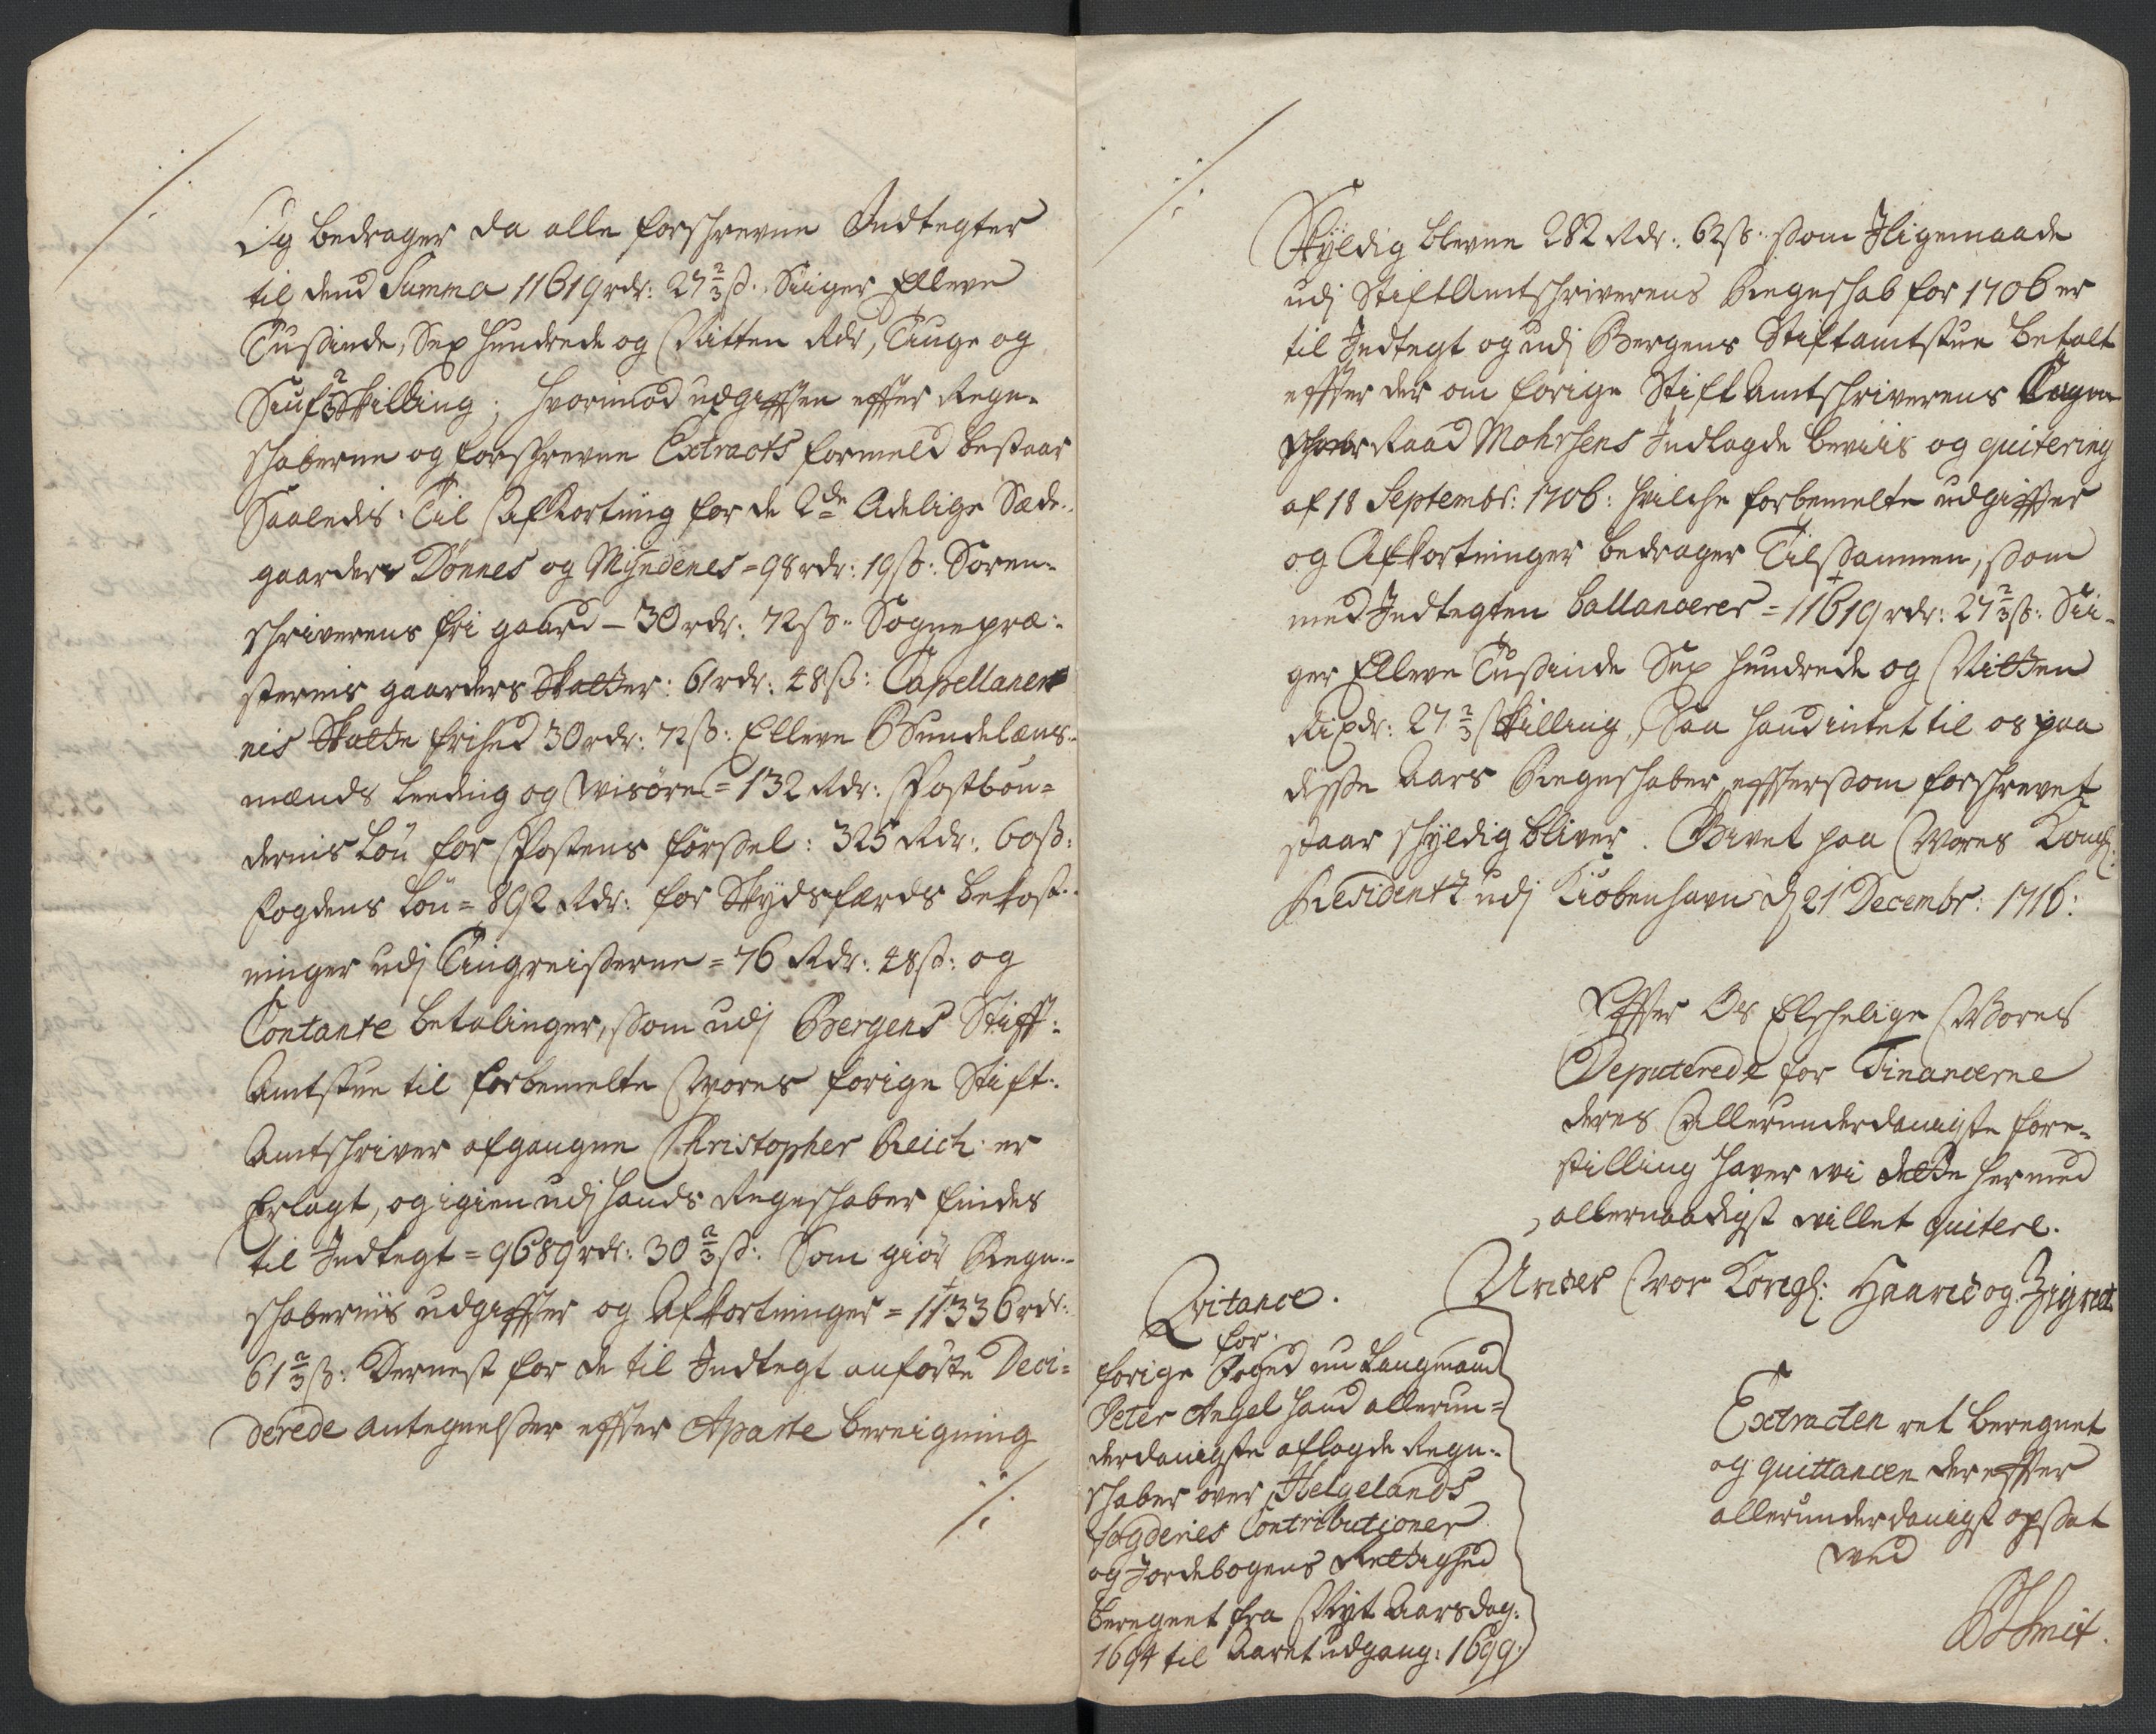 Og bedrager da alle forschrevne Indtegter
til dend Summa 11619 rdr: 27 2/3 ß. Siiger Elleve
Tusinde, Sex hundrede og Nitten Rdr, Tiuge og
Siuf 2/3 Skilling; hvorimod udgifften effter Regn-
schaberne og forschrevne Extracts formeld bestaar
Saaledis: Til Afkortning for de 2de Adelige Sæde-
gaarder Dønnes og Mÿndenes = 98 rdr: 19 ß: Soren-
schriverens fri gaard - 30 rdr: 72 ß: Sognepræ-
sternis gaarders Skatter: 61 rdr: 48 ß: Capellaner
nis Skatte frihed 30 rdr: 72 ß: Elleve Bundelæns-
mænds Leeding og Wisøre = 132 Rdr: Postbøn-
dernis Løn for Postens førsel: 325 Rdr: 60 ß:
fogdens Løn = 892 Rdr: for Skydsfærds bekost-
ninger udj Tingreiserne = 76 Rdr: 48 ß: og
Contante betalinger, som udj Bergens Stifft-
Amtstue til forbemelte Wores forige Stift-
Amtschriver afgangne Christopher Reich er
Erlagt, og igien udj hands Regnschaber findes
til Indtegt = 9689 rdr: 30 2/3 ß: Som giør Regn-
schaberniis udgiffter og Afkortninger = 11336 rdr:
61 2/3 ß: Dernest for de til Indtegt anførte Deci-
derede antegnelser effter Aparte bereigning
Skyldig blevne 282 Rdr: 62 ß: som Iligemaade
udj StiftAmtschriverens Regnschab for 1706 er
til Indtegt og udj Bergens Stiftamtstue betalt
effter der om forige StiftAmtschriverens
Raad Mohrsens Indlagde beviis og quitering
af 18 Septembr: 1706: hvilche forbemelte udgiffter
og Afkortninger bedrager Tilsammen, som
med Indtegten ballancerer = 11619 rdr: 27 2/3 ß: Sii-
ger Elleve Tusinde Sex hundrede og Nitten
Rixdr: 27 2/3 Skilling, Saa hand intet til os paa
disse Aars Regnschaber, efftersom forschrevet
staar schyldig bliver. Givet paa Wores Kongl:
Residentz udj Kiøbenhavn d 21 Decembr: 1716:
Effter Os Elschelige Wores
Deputerede for Financerne
deres Allerunderdanigste fore-
stilling haver wi dette hermed
allernaadigst willet quitere.
Under wor Kongl: Haand og Zignet
Qvitance.
for
forige Foged nu Laugmand
Peter Angel hand allerun-
derdanigste aflagde Regn-
schaber over Helgelands
fogderies Contributioner
og Jordebogens Rettighed
beregnet fra Nyt Aarsdag
1694 til Aaret udgang: 1699.
Extracten ret beregnet
og quittancen dereffter
allerunderdanigst opsat
wed
Smit.